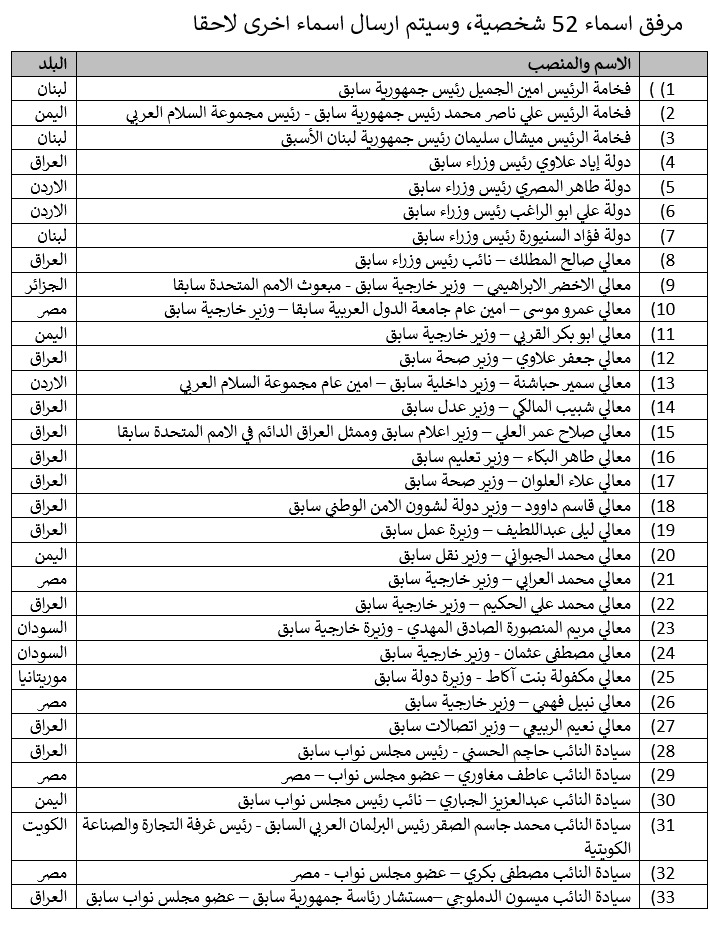 مرفق اسماء 52 شخصية، وسيتم ارسال اسماء اخرى لاحقا
الاسم والمنصب البلد
1) ) فخامة الرئيس امين الجميل رئيس جمهورية سابق لبنان
2) فخامة الرئيس علي ناصر محمد رئيس جمهورية سابق - رئيس مجموعة السلام العربي اليمن
3) فخامة الرئيس ميشال سليمان رئيس جمهورية لبنان الأسبق لبنان
4) دولة إياد علاوي رئيس وزراء سابق العراق
5) دولة طاهر المصري رئيس وزراء سابق الاردن
6) دولة علي ابو الراغب رئيس وزراء سابق الاردن
7) دولة فؤاد السنيورة رئيس وزراء سابق لبنان
8) معالي صالح المطلك – نائب رئيس وزراء سابق العراق
9) معالي الاخضر الابراهيمي – وزير خارجية سابق - مبعوث الامم المتحدة سابقا الجزائر
10) معالي عمرو موسى – امين عام جامعة الدول العربية سابقا – وزير خارجية سابق مصر
11) معالي ابو بكر القربي – وزير خارجية سابق اليمن
12) معالي جعفر علاوي – وزير صحة سابق العراق
13) معالي سمير حباشنة – وزير داخلية سابق – امين عام مجموعة السلام العربي الاردن
14) معالي شبيب المالكي – وزير عدل سابق العراق
15) معالي صلاح عمر العلي – وزير اعلام سابق وممثل العراق الدائم في الامم المتحدة سابقا العراق
16) معالي طاهر البكاء – وزير تعليم سابق العراق
17) معالي علاء العلوان – وزير صحة سابق العراق
18) معالي قاسم داوود – وزير دولة لشوون الامن الوطني سابق العراق
19) معالي ليلى عبداللطيف – وزيرة عمل سابق العراق
20) معالي محمد الجبواني – وزير نقل سابق اليمن
21) معالي محمد العرابي – وزير خارجية سابق مصر
22) معالي محمد علي الحكيم – وزير خارجية سابق العراق
23) معالي مريم المنصورة الصادق المهدي - وزيرة خارجية سابق السودان
24) معالي مصطفى عثمان - وزير خارجية سابق السودان
25) معالي مكفولة بنت آكاط - وزيرة دولة سابق موريتانيا
26) معالي نبيل فهمي – وزير خارجية سابق مصر
27) معالي نعيم الربيعي – وزير اتصالات سابق العراق
28) سيادة النائب حاچم الحسني - رئيس مجلس نواب سابق العراق
29) سيادة النائب عاطف مغاوري – عضو مجلس نواب – مصر مصر
30) سيادة النائب عبدالعزيز الجباري – نائب رئيس مجلس نواب سابق اليمن
31) سيادة النائب محمد جاسم الصقر رئيس البرلمان العربي السابق - رئيس غرفة التجارة والصناعة الكويت
الكويتية
32) سيادة النائب مصطفى بكري – عضو مجلس نواب - مصر مصر
33) سيادة النائب ميسون الدملوجي –مستشار رئاسة جمهورية سابق – عضو مجلس نواب سابق العراق